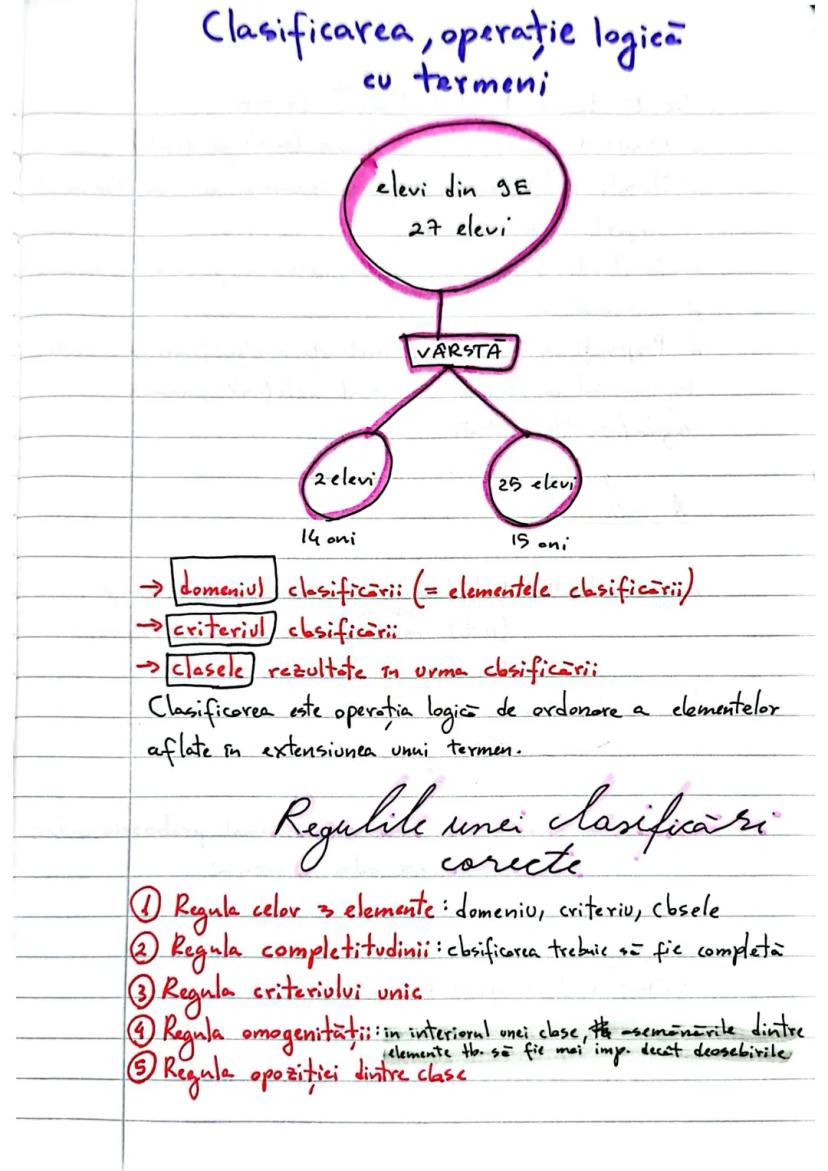 Clasificarea, operație logică
cu termeni
elevi din 9E
27 elevi
VÂRSTĂ
2 elevi
25 elevi
14 ani
15 ani
→ domeniul clasificării (= elementele clasificării)
→ criteriul clasificării
→ clasele rezultate în urma clasificării
Clasificarea este operația logică de ordonare a elementelor
aflate în extensiunea unui termen.
Regulile unei clasificări
corecte
① Regula celor 3 elemente: domeniu, criteriu, clasele
② Regula completitudinii: clasificarea trebuie să fie completă
③ Regula criteriului unic
④ Regula omogenității: in interiorul unei clase, asemănările dintre
elemente tb. să fie mai imp. decât deosebirile
⑤ Regula opoziției dintre clase